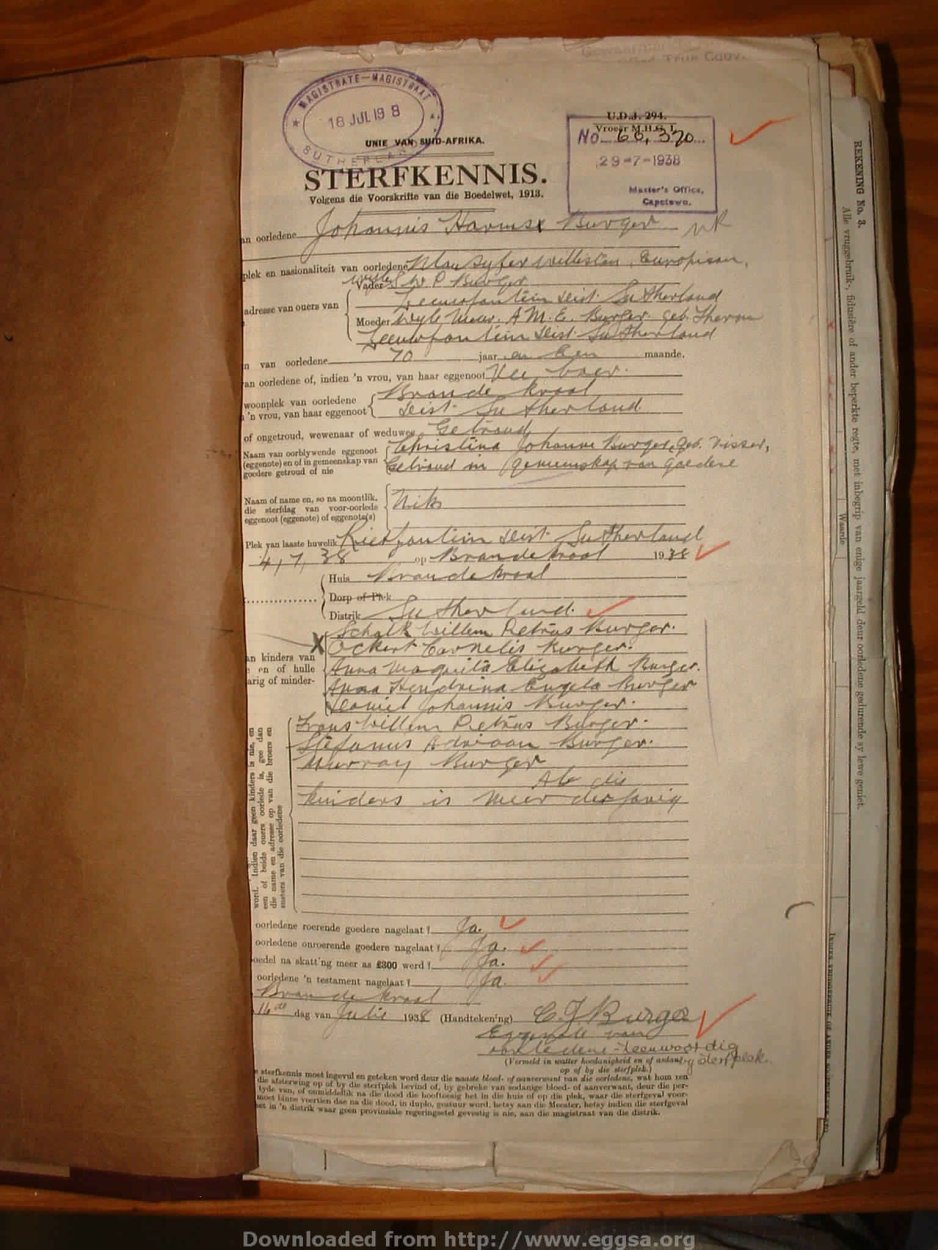 MAGISTRATE—MAGISTRAAT
18 JUL 19 8
SUTHERLAND
UNIE VAN SUID-AFRIKA.
STERFKENNIS.
Volgens die Voorskrifte van die Boedelwet, 1913.
U.D.J. 294.
Vroeër M.H.G. 1.
No. 60, 320
29-7-1938
Master's Office,
Capetown.
an oorledene Johannis Burger
plek en nasionaliteit van oorledene Europeaan,
Vader S W P Burger
Leeuwfontein Dist. Sutherland
adresse van ouers van
Moeder Wyle Mev. A. M. E. Burger. geb. Theron
Leeuwfontein Dist Sutherland
n van oorledene 70 jaar en Een maande.
an oorledene of, indien 'n vrou, van haar eggenoot Vee boer.
woonplek van oorledene Brandekraal
'n vrou, van haar eggenoot Dist. Sutherland
of ongetroud, wewenaar of weduwee Getroud
Naam van oorblywende eggenoot Christina Johanna Burger, geb. Visser,
(eggenote) en of in gemeenskap van Getroud in Gemeenskap van Goedere
goedere getroud of nie
Naam of name en, so na moontlik,
die sterfdag van voor-oorlede Niks
eggenoot (eggenote) of eggenote(s)
Plek van laaste huwelik Rietfontein Dist Sutherland
4, 7, 38 op Brandekraal 1938
Huis Brandekraal
Dorp of Plek
Distrik Sutherland.
Schalk Willem Petrus Burger.
X Ockert Cornelis Burger.
an kinders van
Anna Elizabeth Burger.
e en of hulle
arig of minder-
Anna Hendrina Burger
Daniel Johannis Burger.
Frans Willem Petrus Burger.
Stefanus Adriaan Burger.
Murray Burger
Al die
kinders is meerderjarig
word. Indien daar geen kinders is nie, en
een of beide ouers oorlede is, gee dan
die name en adresse op van die broers en
susters van die oorledene
oorledene roerende goedere nagelaat? Ja.
oorledene onroerende goedere nagelaat? Ja.
oedel na skatting meer as £300 werd? Ja.
oorledene 'n testament nagelaat? Ja
Brandekraal
16de dag van Julie 1938 (Handtekening) C J Burger
Eggenote van
oorledene - teenwoordig
(Vermeld in watter hoedanigheid en of aanwesig op sterfplek
op of by die sterfplek.)
e sterfkennis moet ingevul en geteken word deur die naaste bloed- of aanverwant van die oorledene, wat hom ten
die afsterwing op of by die sterfplek bevind of, by gebreke van sodanige bloed- of aanverwant, deur die per-
tyde van, of onmiddellik na die dood die hooftoesig het in die huis of op die plek, waar die sterfgeval voor-
moet binne veertien dae na die dood, in duplo, gestuur word, hetsy aan die Meester, hetsy indien die sterfgeval
het in 'n distrik waar geen provinsiale regeringsetel gevestig is nie, aan die magistraat van die distrik.
REKENING No. 3.
Alle vruggebruik-, fidusiêre of ander beperkte regte, met inbegrip van enige jaargeld deur oorledene gedurende sy lewe geniet.
Waarde
Downloaded from http://www.eggsa.org